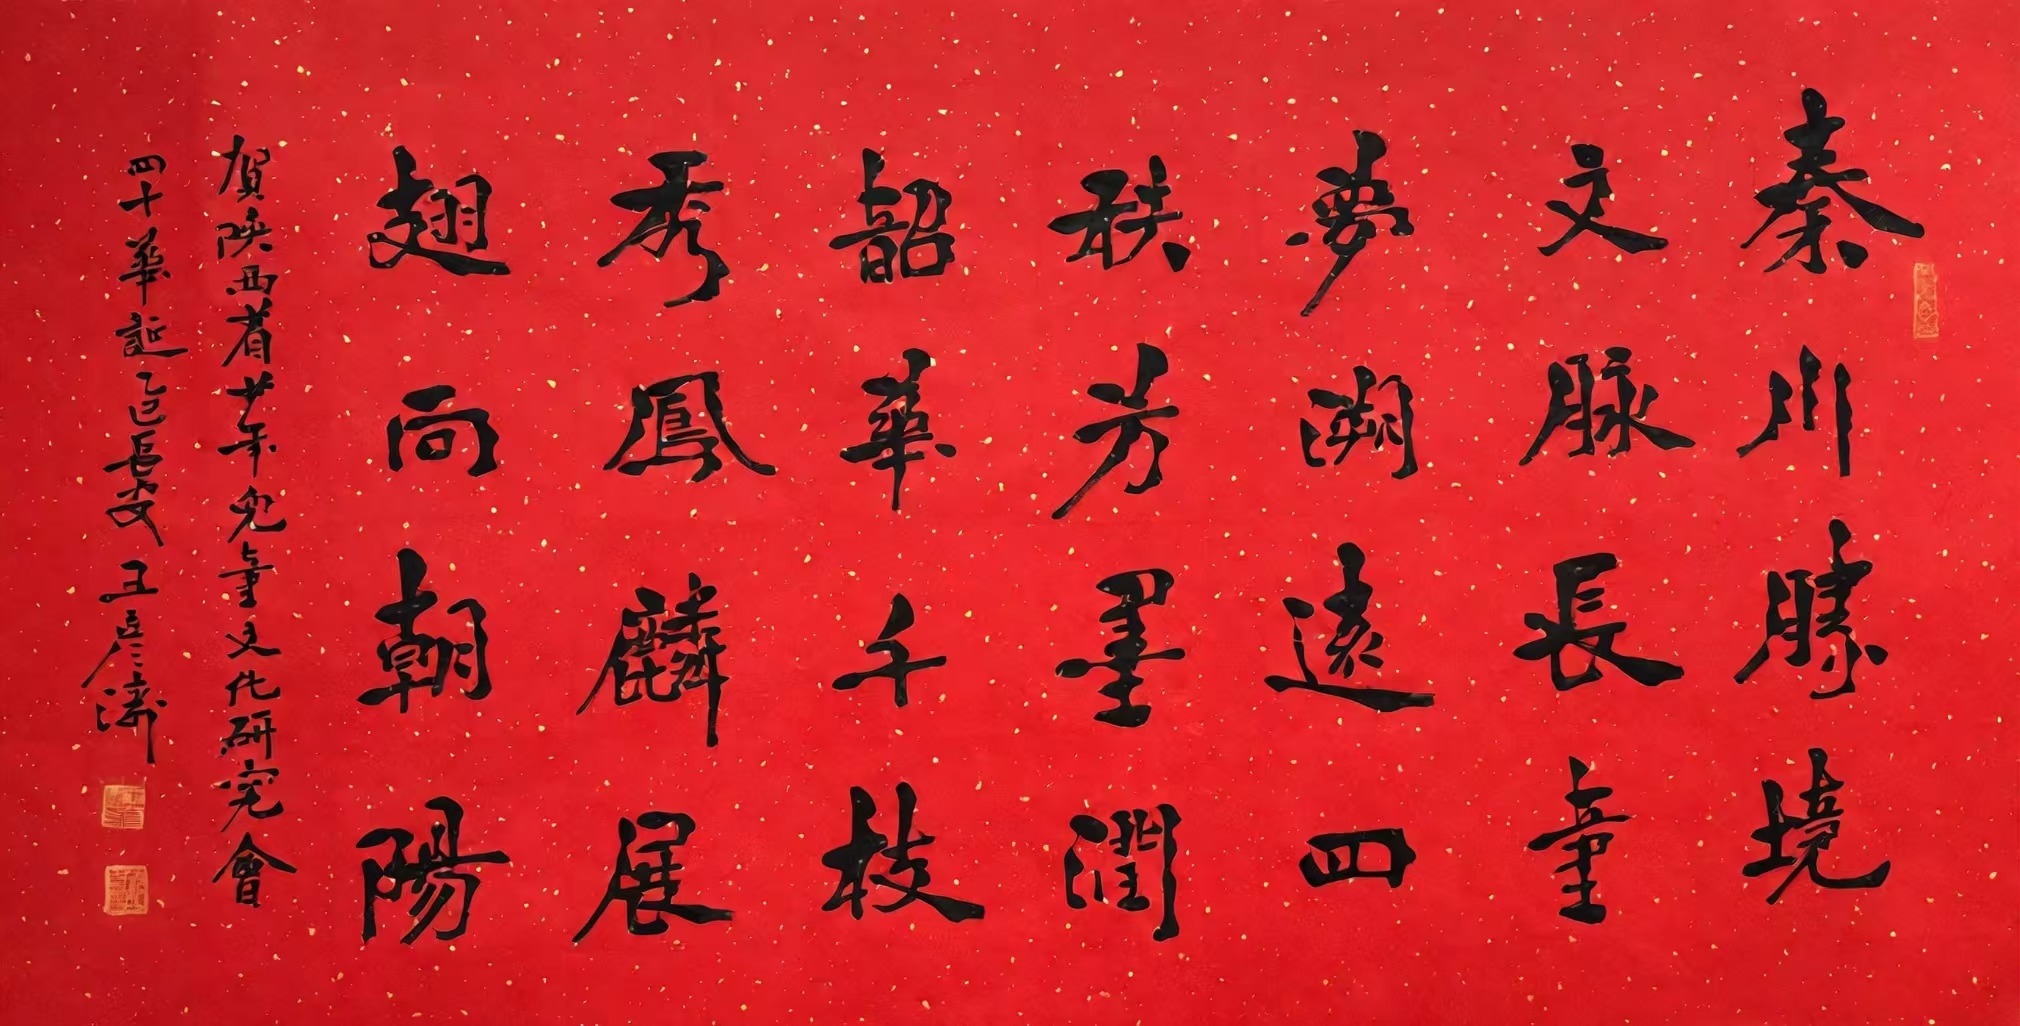 秦川勝境
文脉長童
夢溯遠四
秩芳墨潤
韶華千枝
秀鳳麟展
翅向朝陽
賀陝西省少年兒童文化研究會
四十華誕乙巳長安王彦濤